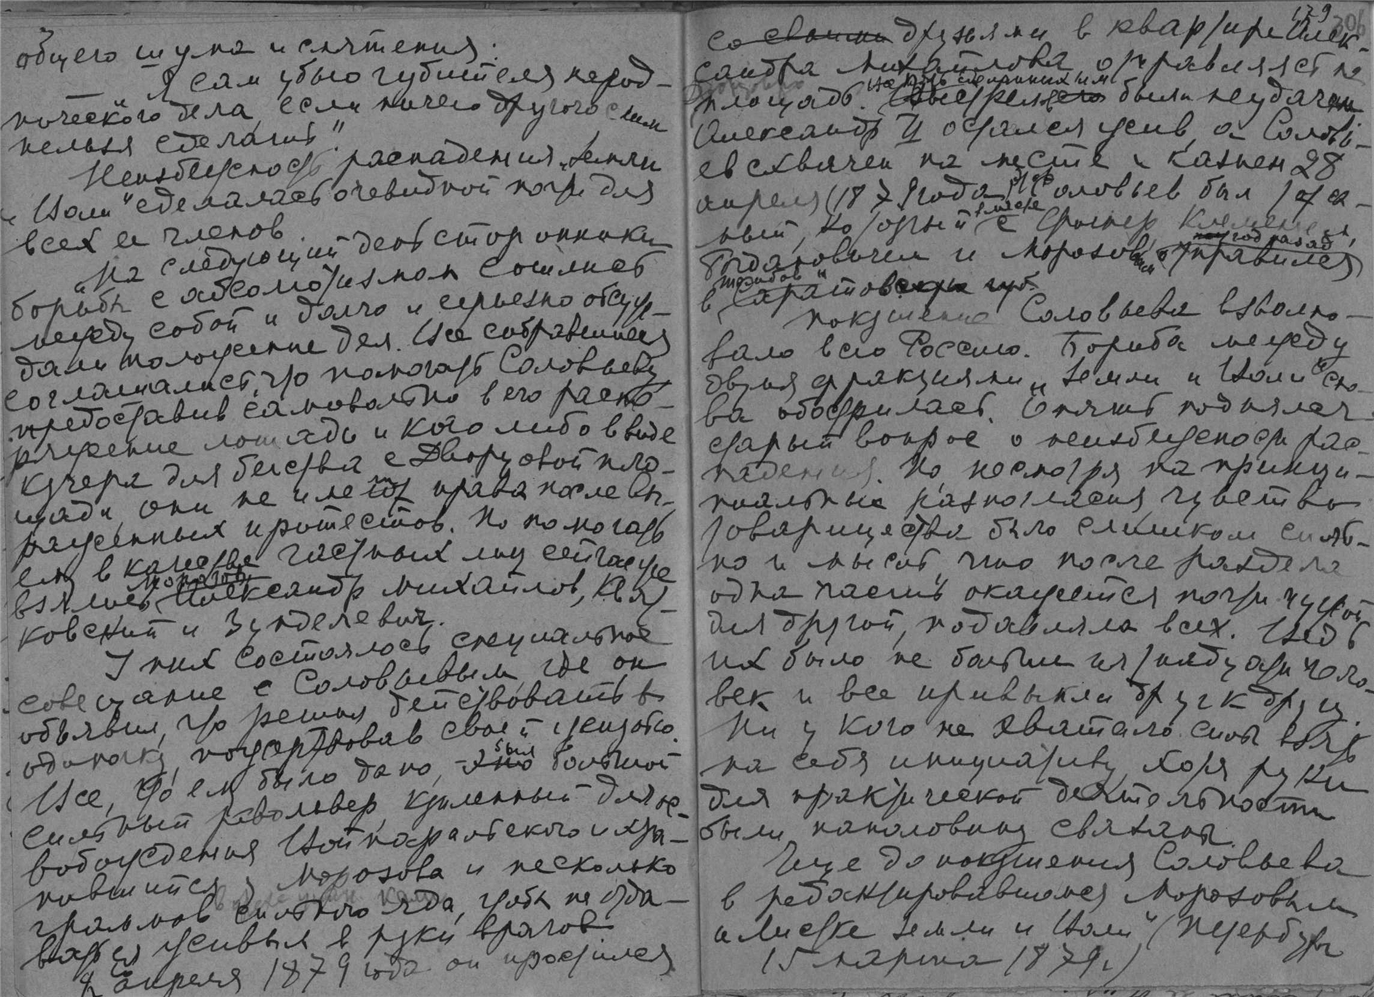 общего шума и смятения.
— Я сам убью губителя народ-
нического дела, если ничего другого с ним
нельзя сделать".
Неизбежность распадения „Земли
и Воли" сделалась очевидной почти для
всех ее членов
На следующий день сторонники
борьбы с абсолютизмом сошлись
между собой и долго и серьезно обсуж-
дали положение дел. Все собравшиеся
соглашались, что помогать Соловьеву
предоставив самовольно в его распо-
ряжение лошадь и кого либо в виде
кучера для бегства с Дворцовой пло-
щади, они не имеют права после вы-
раженных протестов. Но помогать
ему в качестве частных лиц сейчас же
взялись Александр Михайлов, Квят-
ковский и Зунделевич.
У них состоялось специальное
совещание с Соловьевым, где он
объявил, что решил действовать в
одиночку, пожертвовав своей жизнью.
Все, что ему было дано, был большой
сильный револьвер, купленный для ос-
вобождения Войнаральского и хра-
нившийся у Морозова и несколько
граммов сильного яда, чтобы не отда-
ваться живым в руки врагов
2 апреля 1879 года он простился
179 306
со своими друзьями в квартире Алек-
сандра Михайлова отправляется на
площадь. Выстрелы его были неудачны
Александр II остался жив, а Соловь-
ев схвачен на месте и казнен 28
апреля (1879 года). Соловьев был тот са-
мый, который вместе с Клеменцем,
Богдановичем и Морозовым отправился
год назад
в Саратовскую губ.
Покушение Соловьева взволно-
вало всю Россию. Борьба между
двумя фракциями „Земли и Воли" сно-
ва обострилась. Опять поднялся
старый вопрос о неизбежности рас-
падения. Но, несмотря на принци-
пиальные разногласия, чувство
товарищества было слишком силь-
но и мысль что после раздела
одна часть окажется почти чужой
для другой, подавляла всех. Ведь
их было не больше пятнадцати чело-
век и все привыкли друг к другу.
Ни у кого не хватало силы взять
на себя инициативу, хотя руки
для практической деятельности
были наполовину связаны.
Еще до покушения Соловьева
в редактировавшемся Морозовым
„Листке Земли и Воли" (Петербург
15 марта 1879 г.)